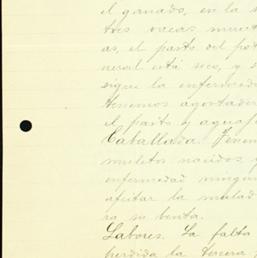 el ganado, en la s
tres vacas muert
as, el pasto del pot
neral está seco, y s
sigue la enfermeda
tenemos agostader
el pasto y aguase
Caballada. Tenem
muletos nacidos y
enfermedad ningun
afectar la mulad
ra su benta.
Labores. La falta
perdida la tercera